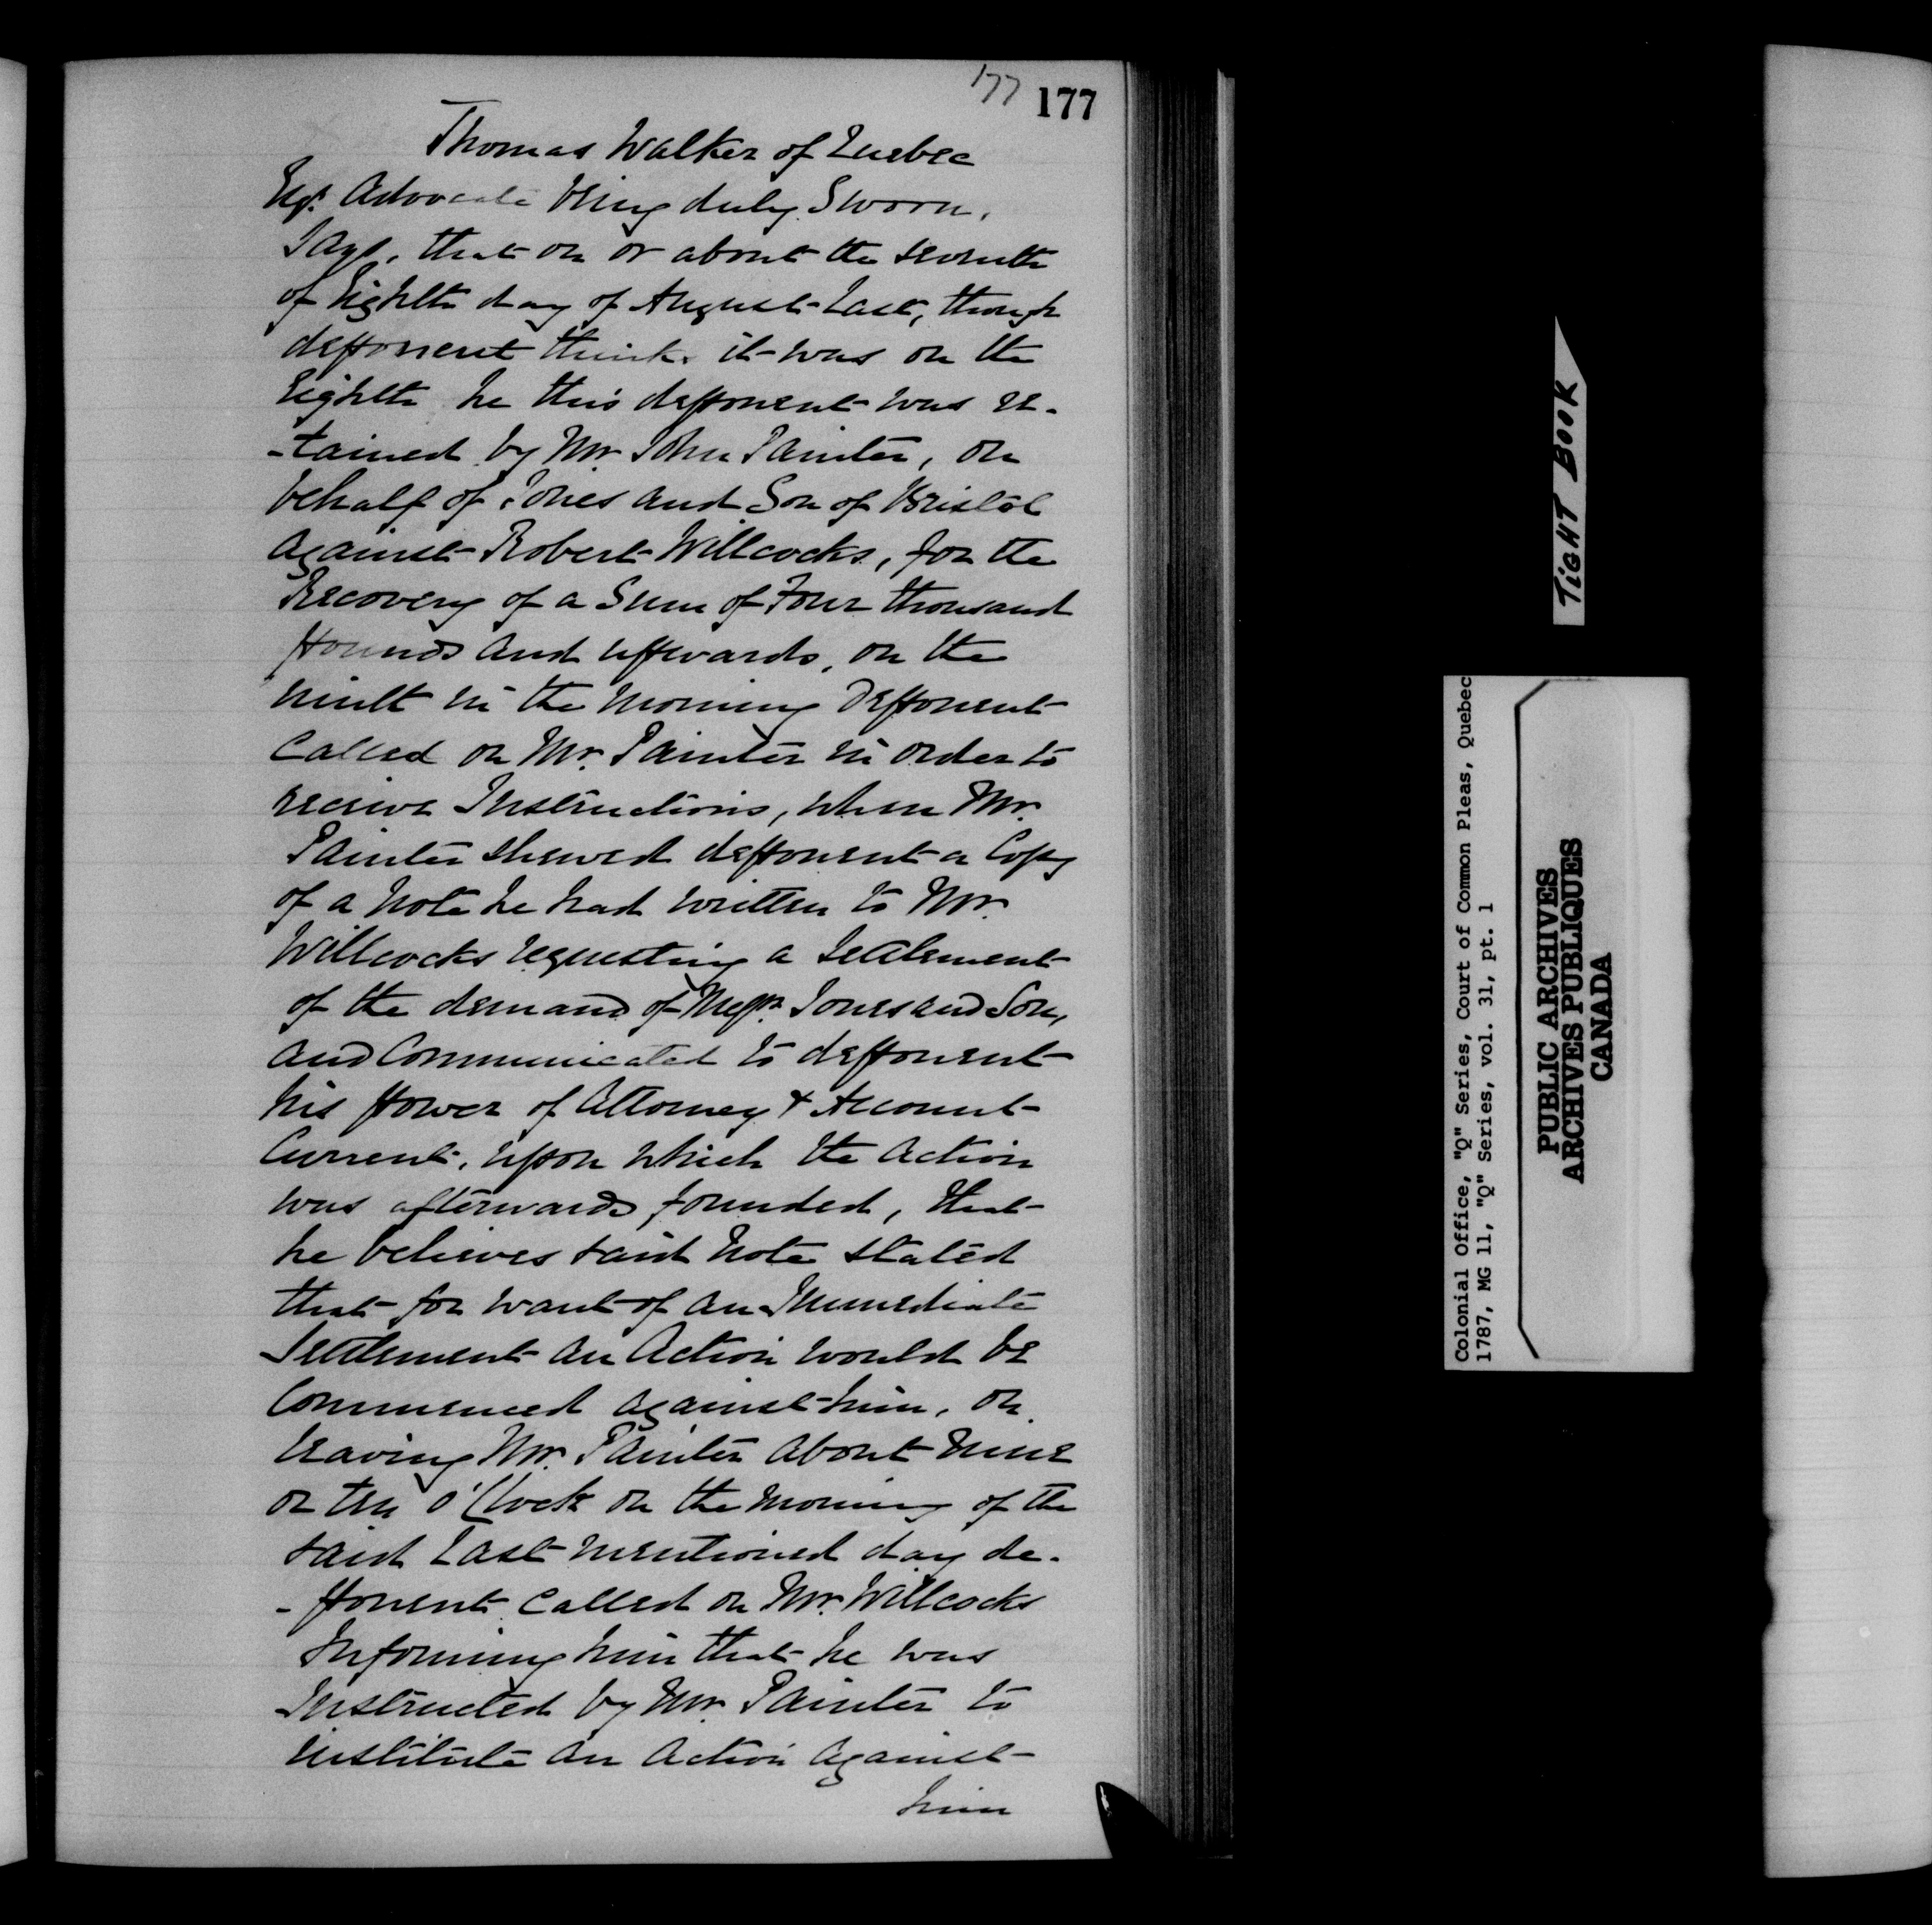 177 177
Thomas Walker of Quebec
Esqr. Advocate being duly Sworn,
Says, that on or about the seventh
of Eighth day of August Last, though
deponent thinks it was on the
Eighth he this deponent was re-
-tained by Mr. John Painter, on
behalf of Jones and Son of Bristol
against Robert Willcocks, for the
Recovery of a Sum of Four thousand
pounds and upwards, on the
ninth in the morning Deponent
Called on Mr. Painter in order to
receive Instructions, when Mr.
Painter shewed deponent a Copy
of a note he had written to Mr.
Willcocks requesting a Settlement
of the demand of Messrs. Jones and Son,
and Communicated to deponent
his power of Attorney & Account
Current, upon which the Action
was afterwards founded, that
he believes said Note stated
that for want of an Immediate
Settlement an Action would be
Commenced against him, on
leaving Mr. Painter about Nine
or ten o'Clock on the morning of the
said Last mentioned day de-
-ponent called on Mr. Willcocks
Informing him that he was
Instructed by Mr. Painter to
institute an Action against
him
TIGHT BOOK
Colonial Office, "Q" Series, Court of Common Pleas, Quebec
1787, MG 11, "Q" Series, vol. 31, pt. 1
PUBLIC ARCHIVES
ARCHIVES PUBLIQUES
CANADA